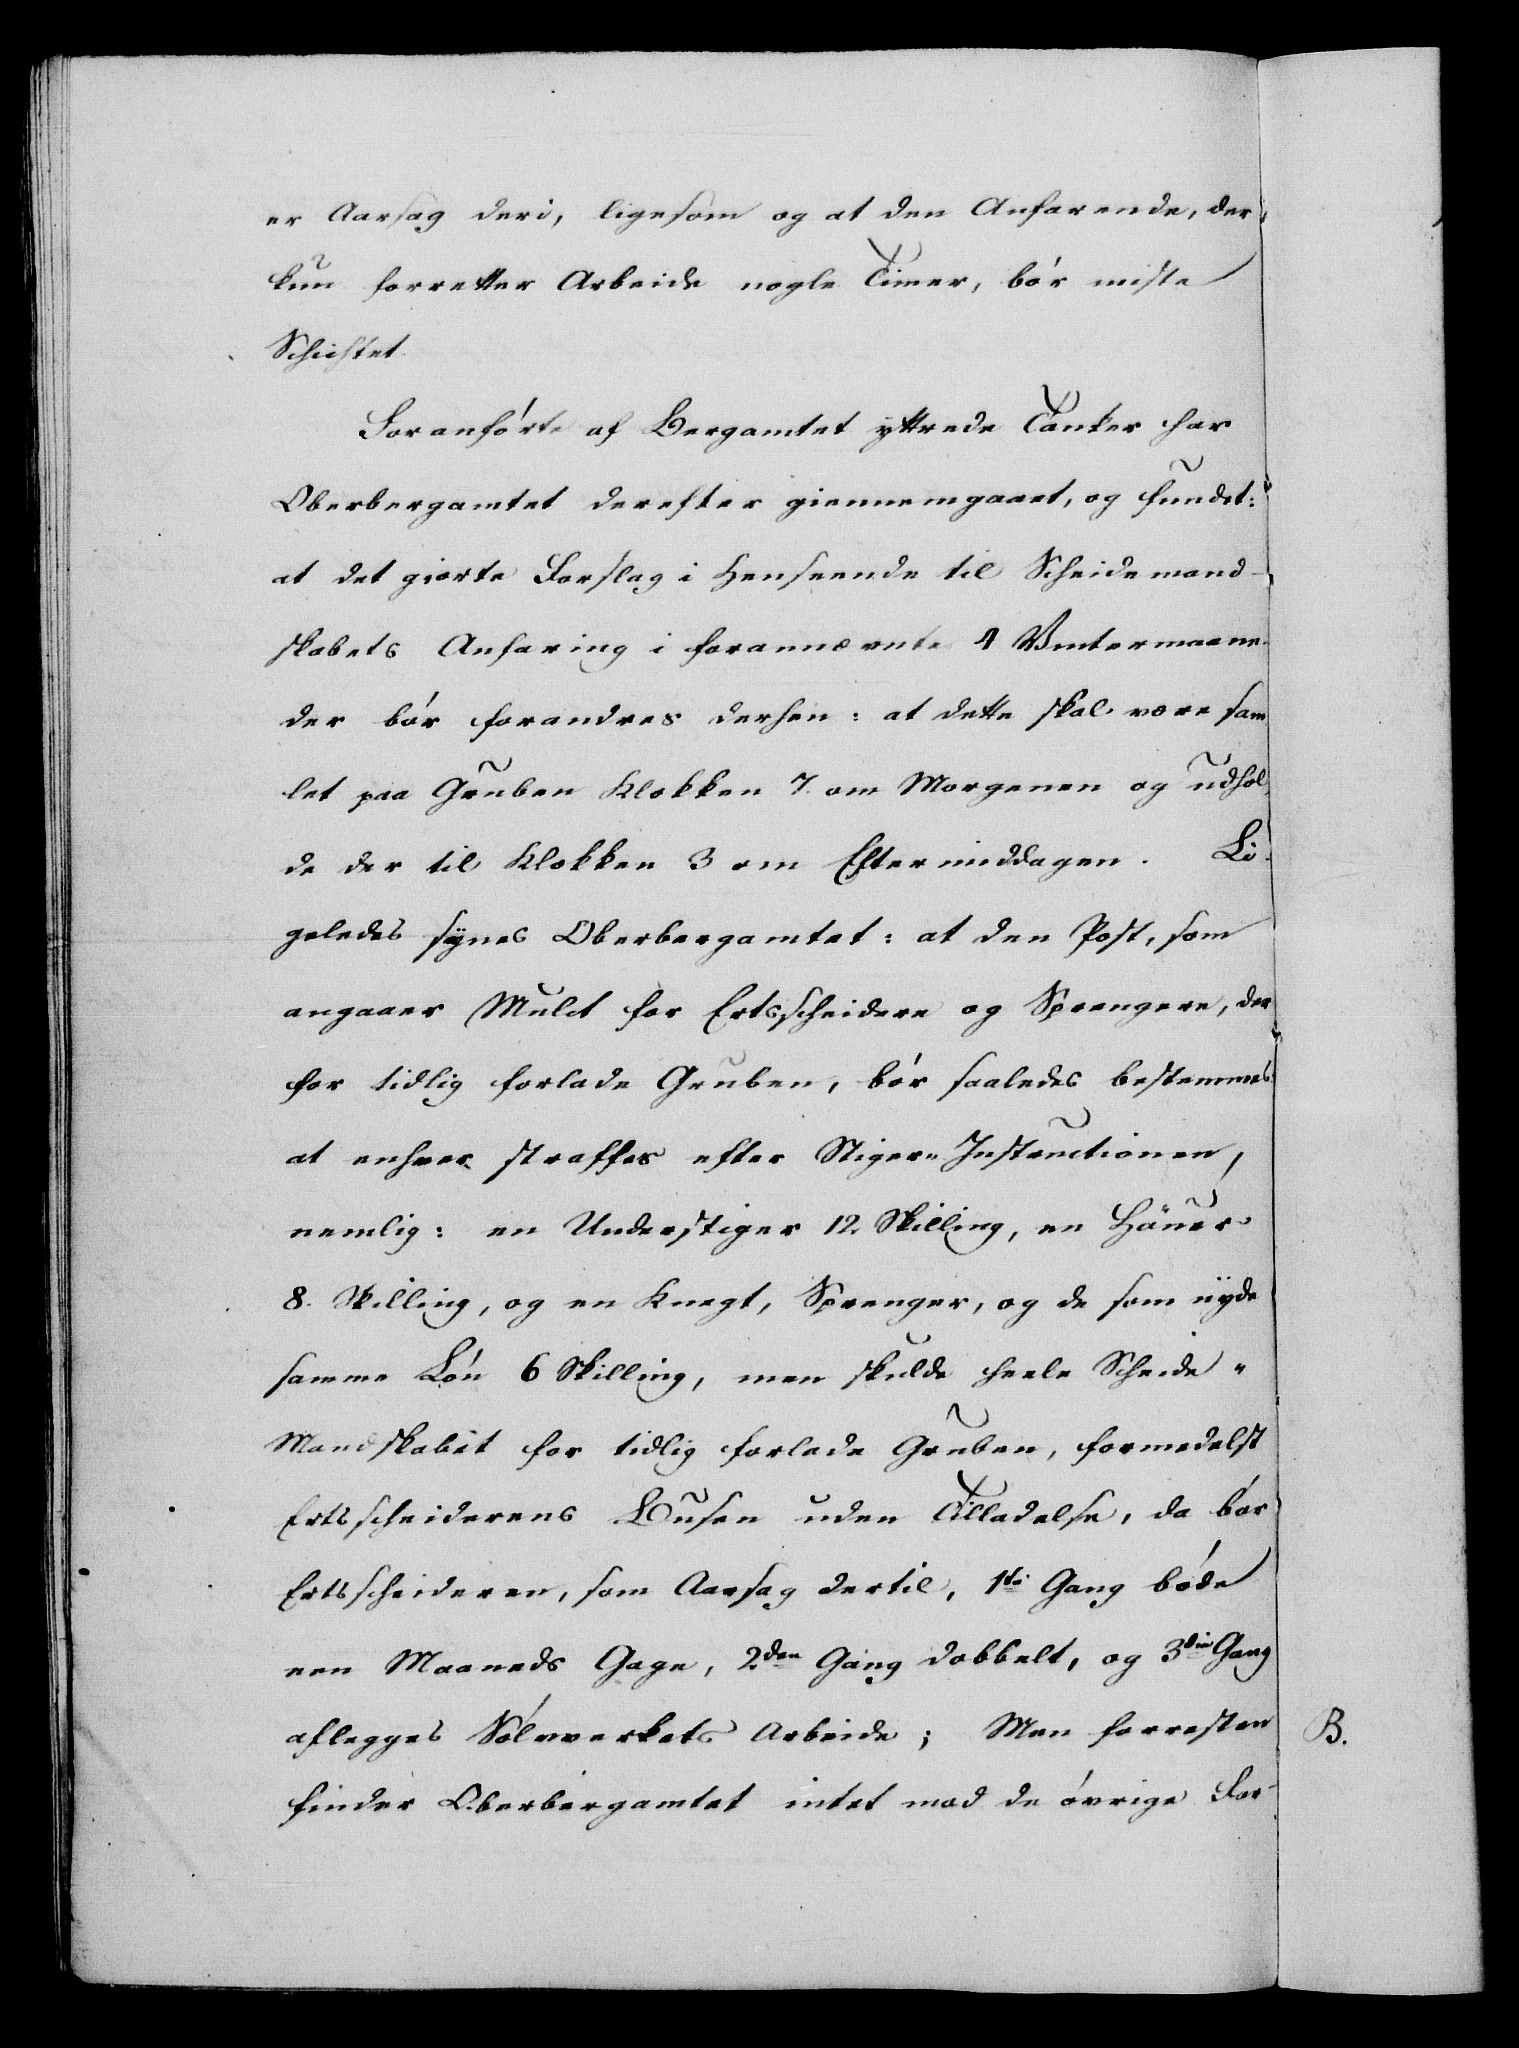 er Aarsag deri, ligesom og at den Anfarende, der
kun forretter Arbeide nogle Timer, bør miste
Schichtet.
Foranførte af Bergamtet yttrede Tanker har
Oberbergamtet derefter giennemgaaet, og fundet:
at det giorte Forslag i Henseende til Scheidemand-
skabets Anfaring i forannævnte 4 Vintermaane-
der bør forandres derhen: at dette skal være sam
let paa Gruben Klokken 7. om Morgenen og udhol
de der til Klokken 3 om Eftermiddagen. Li-
geledes synes Oberbergamtet: at den Post, som
angaaer Mulct for Ertsscheidere og Sprengere, der
for tidlig forlade Gruben, bør saaledes bestemmes
at enhver straffes efter Stiger-Instructionen,
nemlig: en Understiger 12 Skilling, en Häuer
8. Skilling, og en Knegt, Sprenger, og de som nyde
samme Løn 6 Skilling, men skulde heele Scheide-
Mandskabet for tidlig forlade Gruben, formedelst
Ertsscheiderens Busen uden Tilladelse, da bør
Ertsscheideren, som Aarsag dertil, 1ste Gang bøde
een Maaneds Gage, 2den Gang dobbelt, og 3die Gang
aflegges Sølvverkets Arbeide; Men forresten
B.
finder Oberbergamtet intet mod de øvrige For-